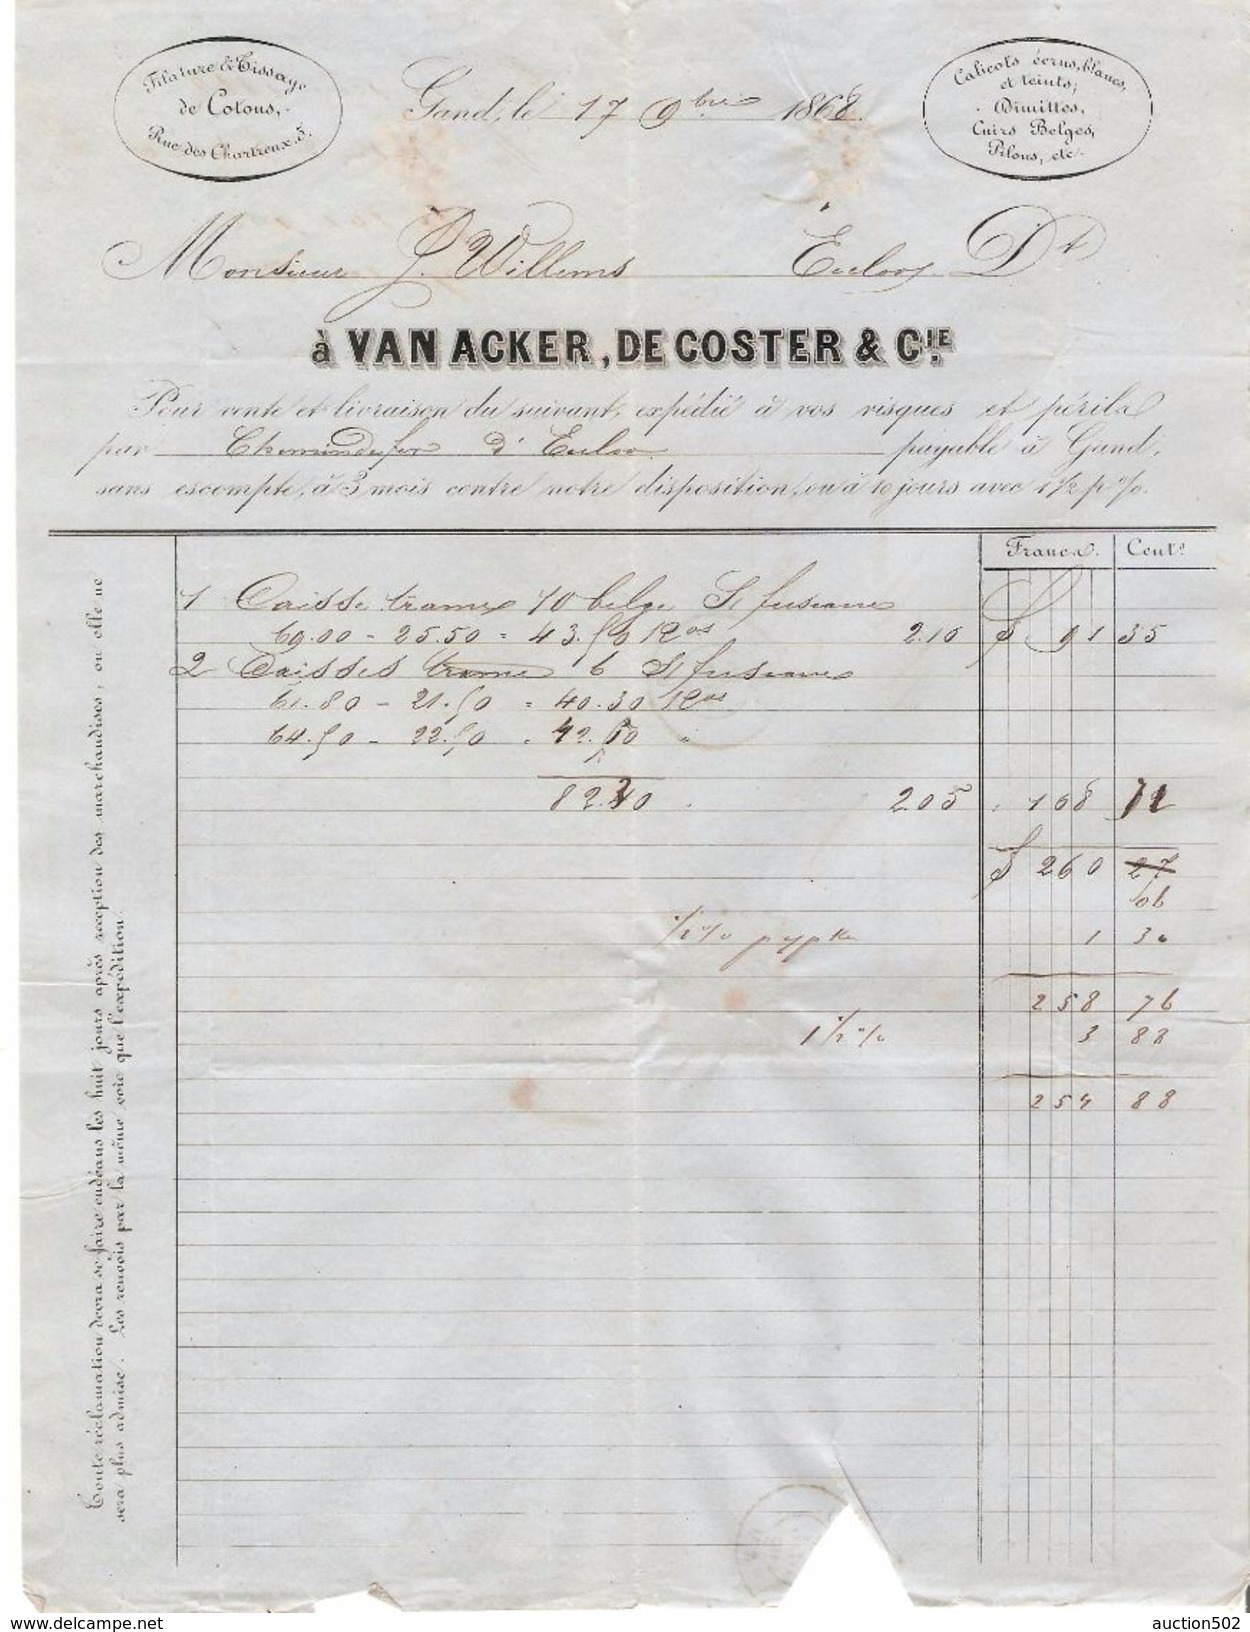 Filature & Tissage
de Cotons,
Rue des Chartreux. 5.
Gand, le 17 9bre 1868.
Calicots écrus, blancs,
et teints;
Dimittes,
Cuirs Belges,
Pilous, etc.
Monsieur J. Willems Eecloo Dt
à VAN ACKER, DE COSTER & CIE
Pour vente et livraison du suivant, expédié à vos risques et périls
par Chemin de fer d'Eecloo payable à Gand,
sans escompte, à 3 mois contre notre disposition, ou à 10 jours avec 1 1/2 p %.
Francs. Cents
1 Caisse trame 10 belge St fuseaux
69.00 - 25.50 = 43.50 Kos 2.10 f 91 35
2 Caisses trame 6 St fuseaux
61.80 - 21.50 = 40.30 Kos
64.50 - 22.50 = 42.00 "
82.30 . 205 . 168 72
f 260 27
06
1/2 % 1 30
258 76
1 1/2 % 3 88
254 88
Toute réclamation devra se faire endéans les huit jours après réception des marchandises, ou elle ne
sera plus admise. Les renvois par la même voie que l'expédition.
auction502